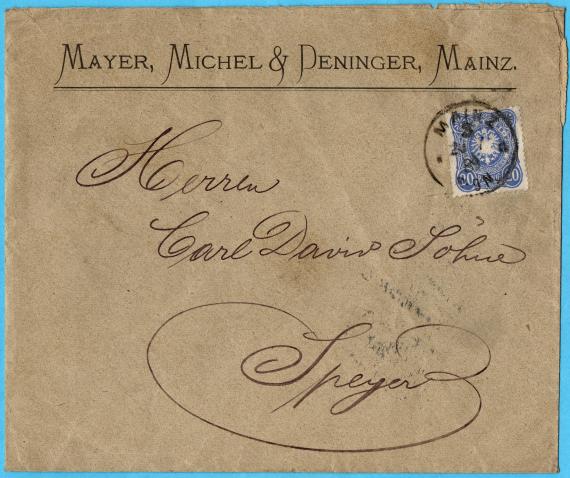 MAYER, MICHEL & DENINGER, MAINZ.
MAINZ
20 20
Herren
Carl David Söhne
Speyer